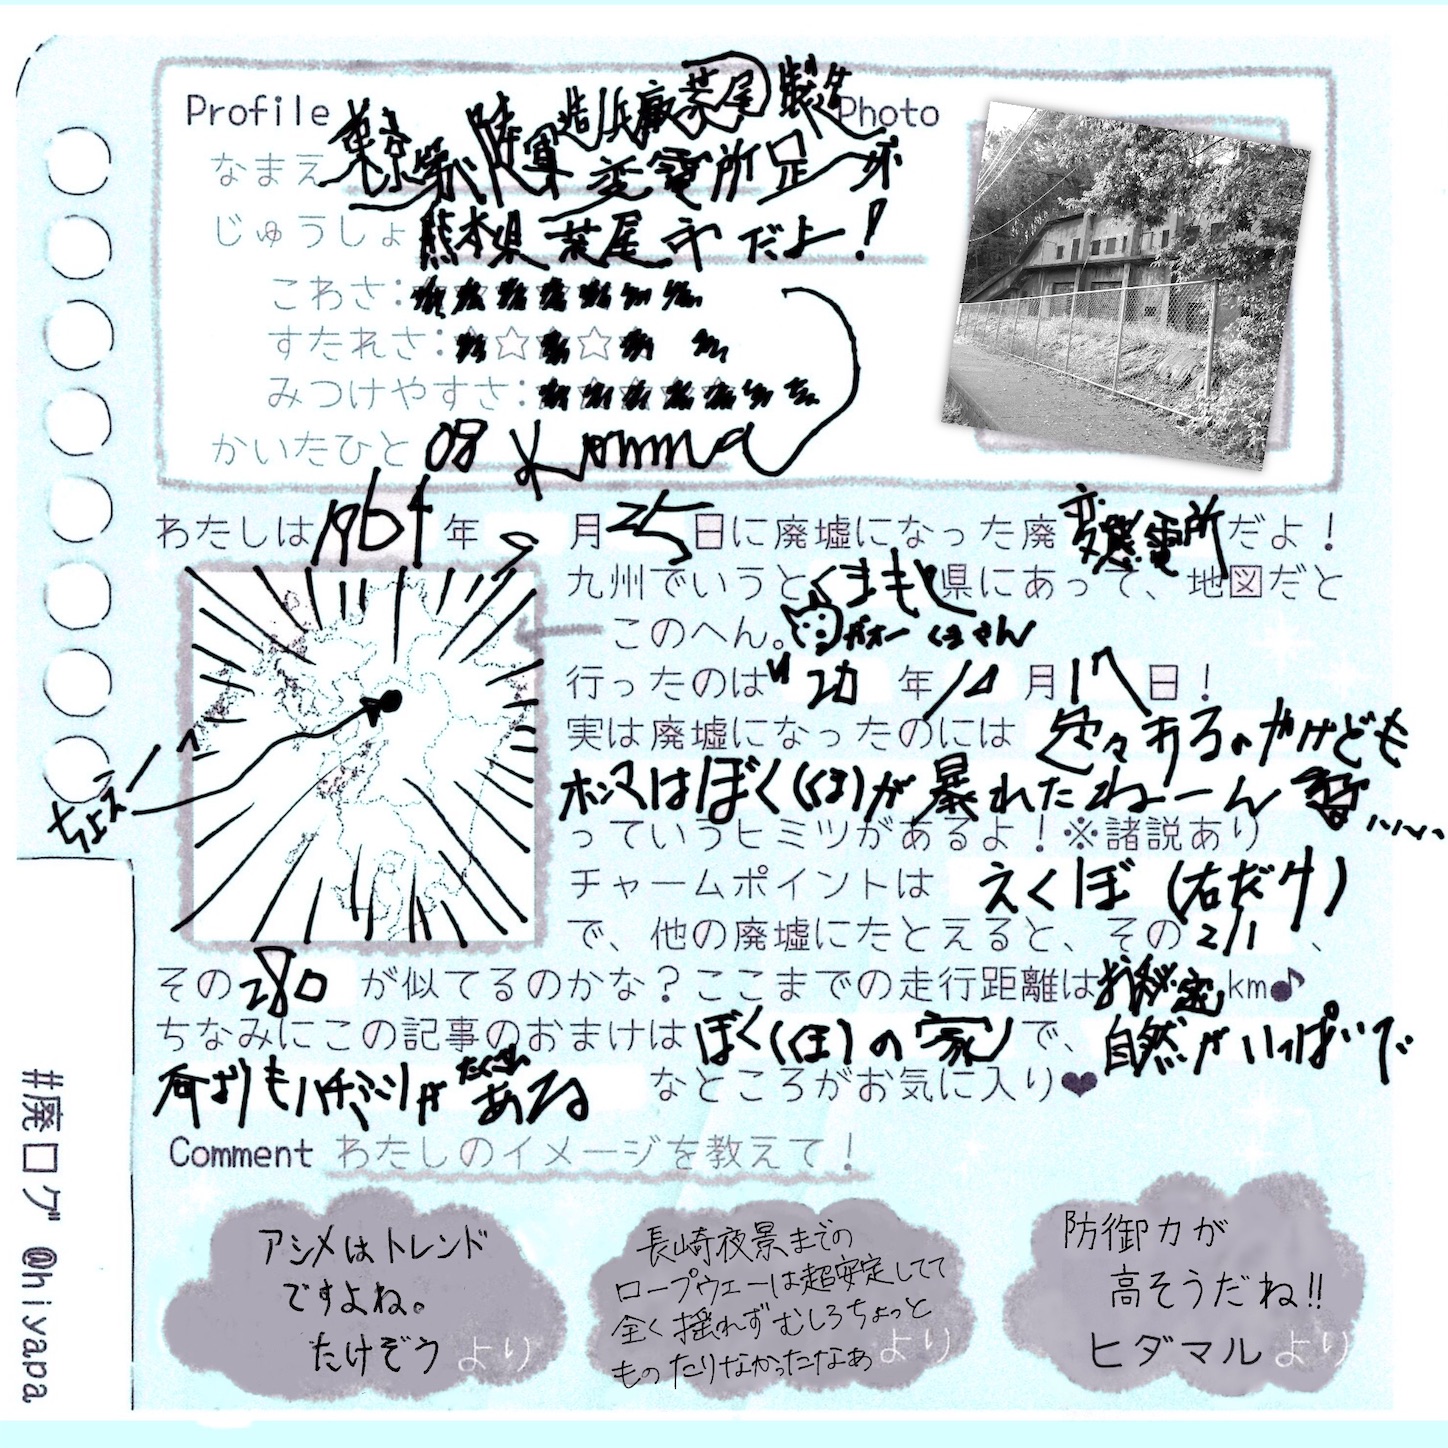 Profile
Photo
東京第二陸軍造兵廠荒尾製造
なまえ 変電所
じゅうしょ 熊本県荒尾市だよ！
こわさ：
すたれさ： ☆ ☆
みつけやすさ：
かいたひと 08 Komma
わたしは 年 月25日に廃墟になった廃変電所だよ！
九州でいうとくまもと県にあって、地図だと
このへん。ガオー くまさん
行ったのは 年10月17日！
実は廃墟になったのには 色々あるのやけども
ホンマはぼく(くま)が暴れたねーん
っていうヒミツがあるよ！※諸説あり
チャームポイントは えくぼ (右だけ)
で、他の廃墟にたとえると、その211、
その280が似てるのかな？ここまでの走行距離は km♪
ちなみにこの記事のおまけはぼく(くま)の家で、自然がいっぱいで
何よりもハチミツがたくさんある なところがお気に入り♥
Comment わたしのイメージを教えて！
アシメはトレンド
ですよね。
たけぞう より
長崎夜景までの
ロープウェーは超安定してて
全く揺れずむしろちょっと
ものたりなかったなあ より
防御力が
高そうだね!!
ヒダマル より
#廃ログ @hiyapa